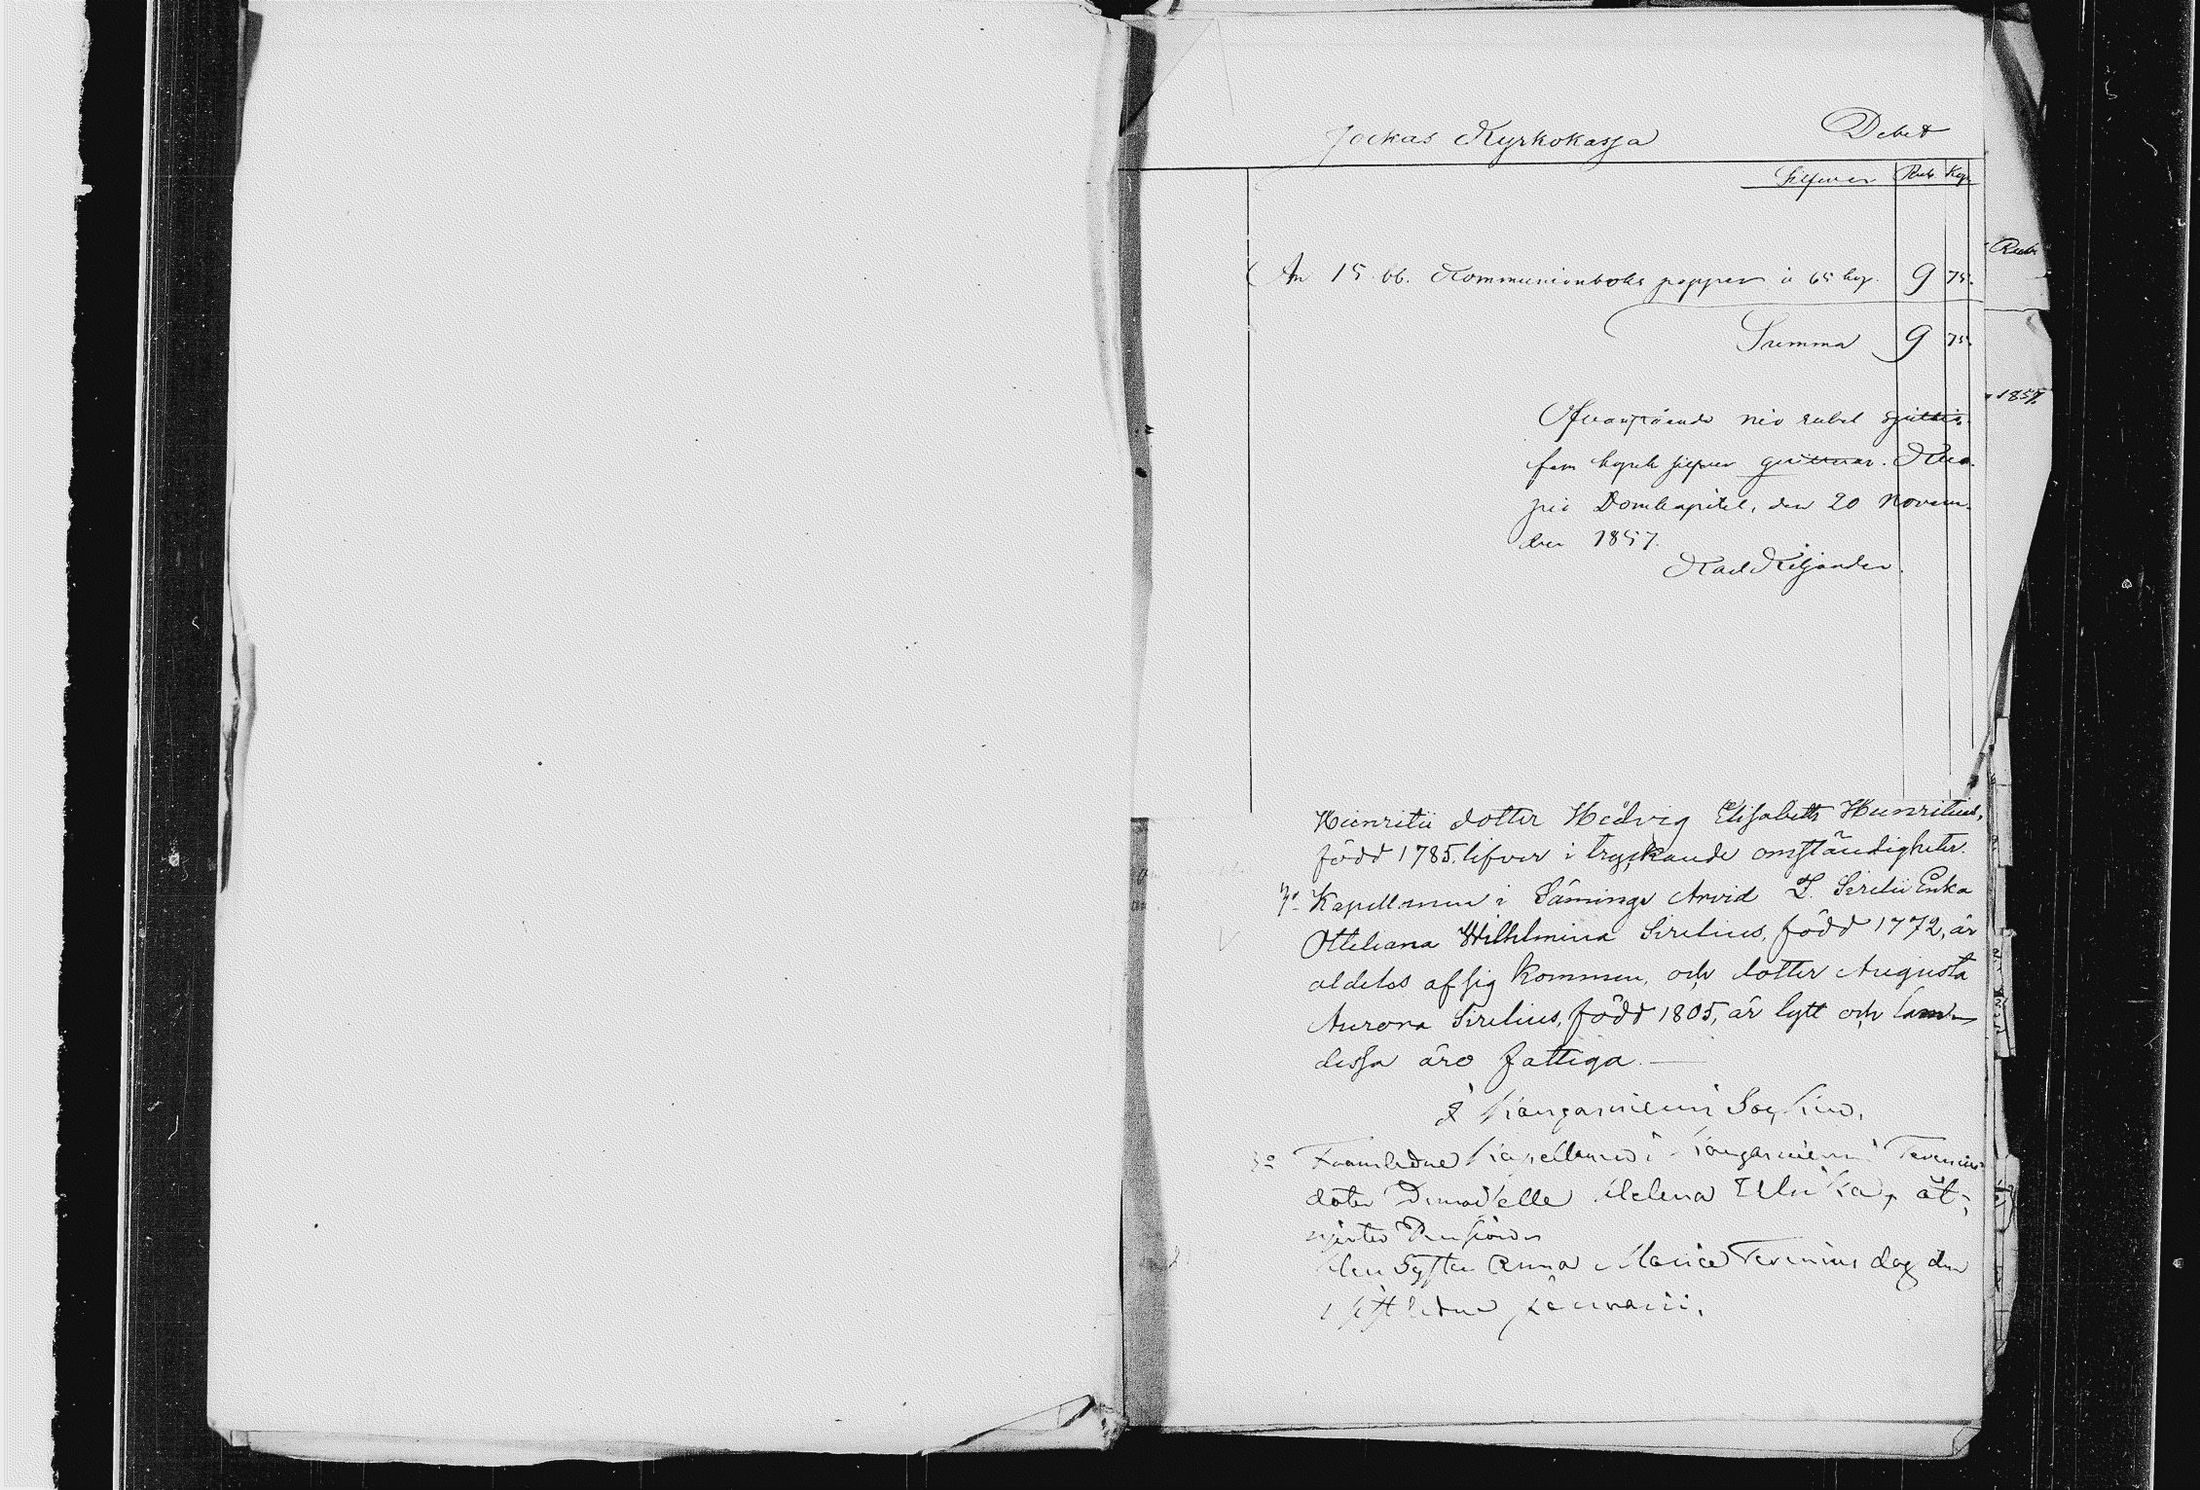 Jockas Kyrkokassa Debet
Silfver Rub. Kop.
An 15 bb. Kommunionboks papper à 65 kop. 9 75.
Summa 9 75.
Ofvanstående nio rubel sjuttio-
fem kopek silfver qvitteras. Kuo-
pio Domkapitel, den 20 Novem-
ber 1857.
Karl Kiljander.
Rub.
1857.
Heinritii dotter Hedvig Elisabeth Heinritius,
född 1785. lefver i tryckande omständigheter.
Kapellanen i Säminge Arvid S. Sirelii Enka
Ottiliana Wilhelmina Sirelius, född 1772, är
aldeles af sig kommen, och dotter Augusta
Aurora Sirelius, född 1805, är lytt och lam
dessa äro fattiga.
I Kangasniemi Sochn.
3o Framledne Kapellanen i Kangasniemi Terenius
doter Demoiselle Helena Ulrika, åt-
njuter Pension
Anna Maria Terenius dog den
sistledne Januarii.